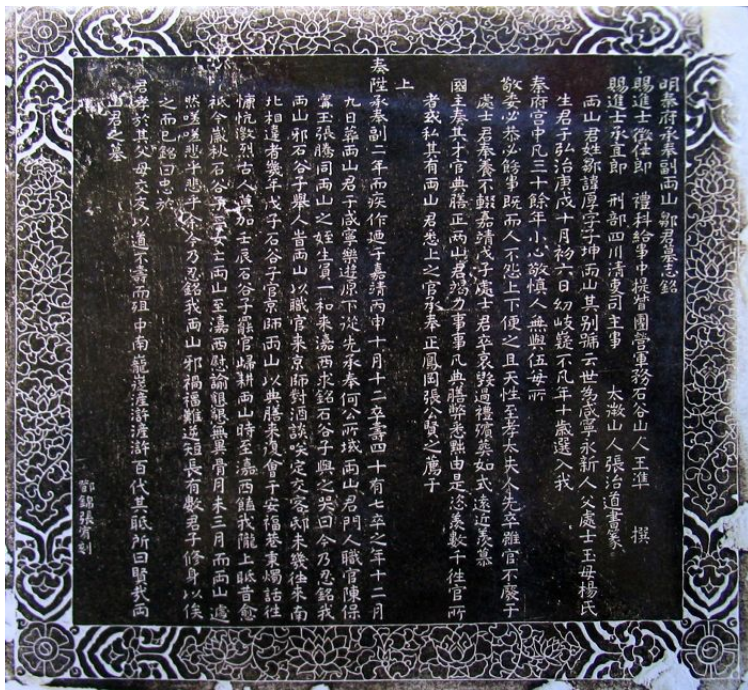 明秦府承奉副兩山鄒君墓志銘
賜進士徵仕郎 禮科給事中提督團營軍務石谷山人王準 撰
賜進士承直郎 刑部四川清吏司主事 太微山人張治道書篆
兩山君姓鄒諱厚字子坤兩山其別號云世為咸寧永新人父處士玉母楊氏
生君于弘治庚戌十月初六日幼岐嶷不凡年十歲選入我
秦府宮中凡三十餘年小心敬慎人無與伍毋所
敬妄必恭必飭事既而人不怨上下便之且天性至孝太夫人先卒雖官不廢于
處士君奉養不輟嘉靖戊子處士君卒哀毀過禮殯葬如式遠近羨慕
國主奏其才官典膳正兩山君竭力事事凡典膳弊悉黜由是忿羨數千徃官所
者或私其有兩山君悉上之官承奉正鳳岡張公賢之薦于
上
奏陞承奉副二年而疾作廼于嘉靖丙申十月十二卒壽四十有七卒之年十二月
九日葬兩山君于咸寧樂遊原下從先承奉何公所域兩山君門人職官陳保
甯玉張騰同兩山之姪生員一和來滻西求銘石谷子興之哭曰今乃忍銘我
兩山邪石谷子舉人旹兩山以職官來京師對酒談咲定交客邸未幾徃來南
北相違者幾年戊子石谷子官京師兩山以典膳來復會于安福巷東燭話徃
慷忼激烈古人蔑加壬辰石谷子辭官歸耕兩山時至滻西饁我隴上眡昔愈
袛今歲秋石谷子喪女士兩山至滻西慰諭懇懇無異骨月未三月而兩山遽
然嗟嗟悲乎悲乎余今乃忍銘我兩山邪禍福難逆短長有數君子修身以俟
之而已銘曰忠於
君孝於其父母交友以道不壽而殂中南巃嵸滻滸滻滸百代其眡所曰賢哉兩
山君之墓
鄠錦張宵刻